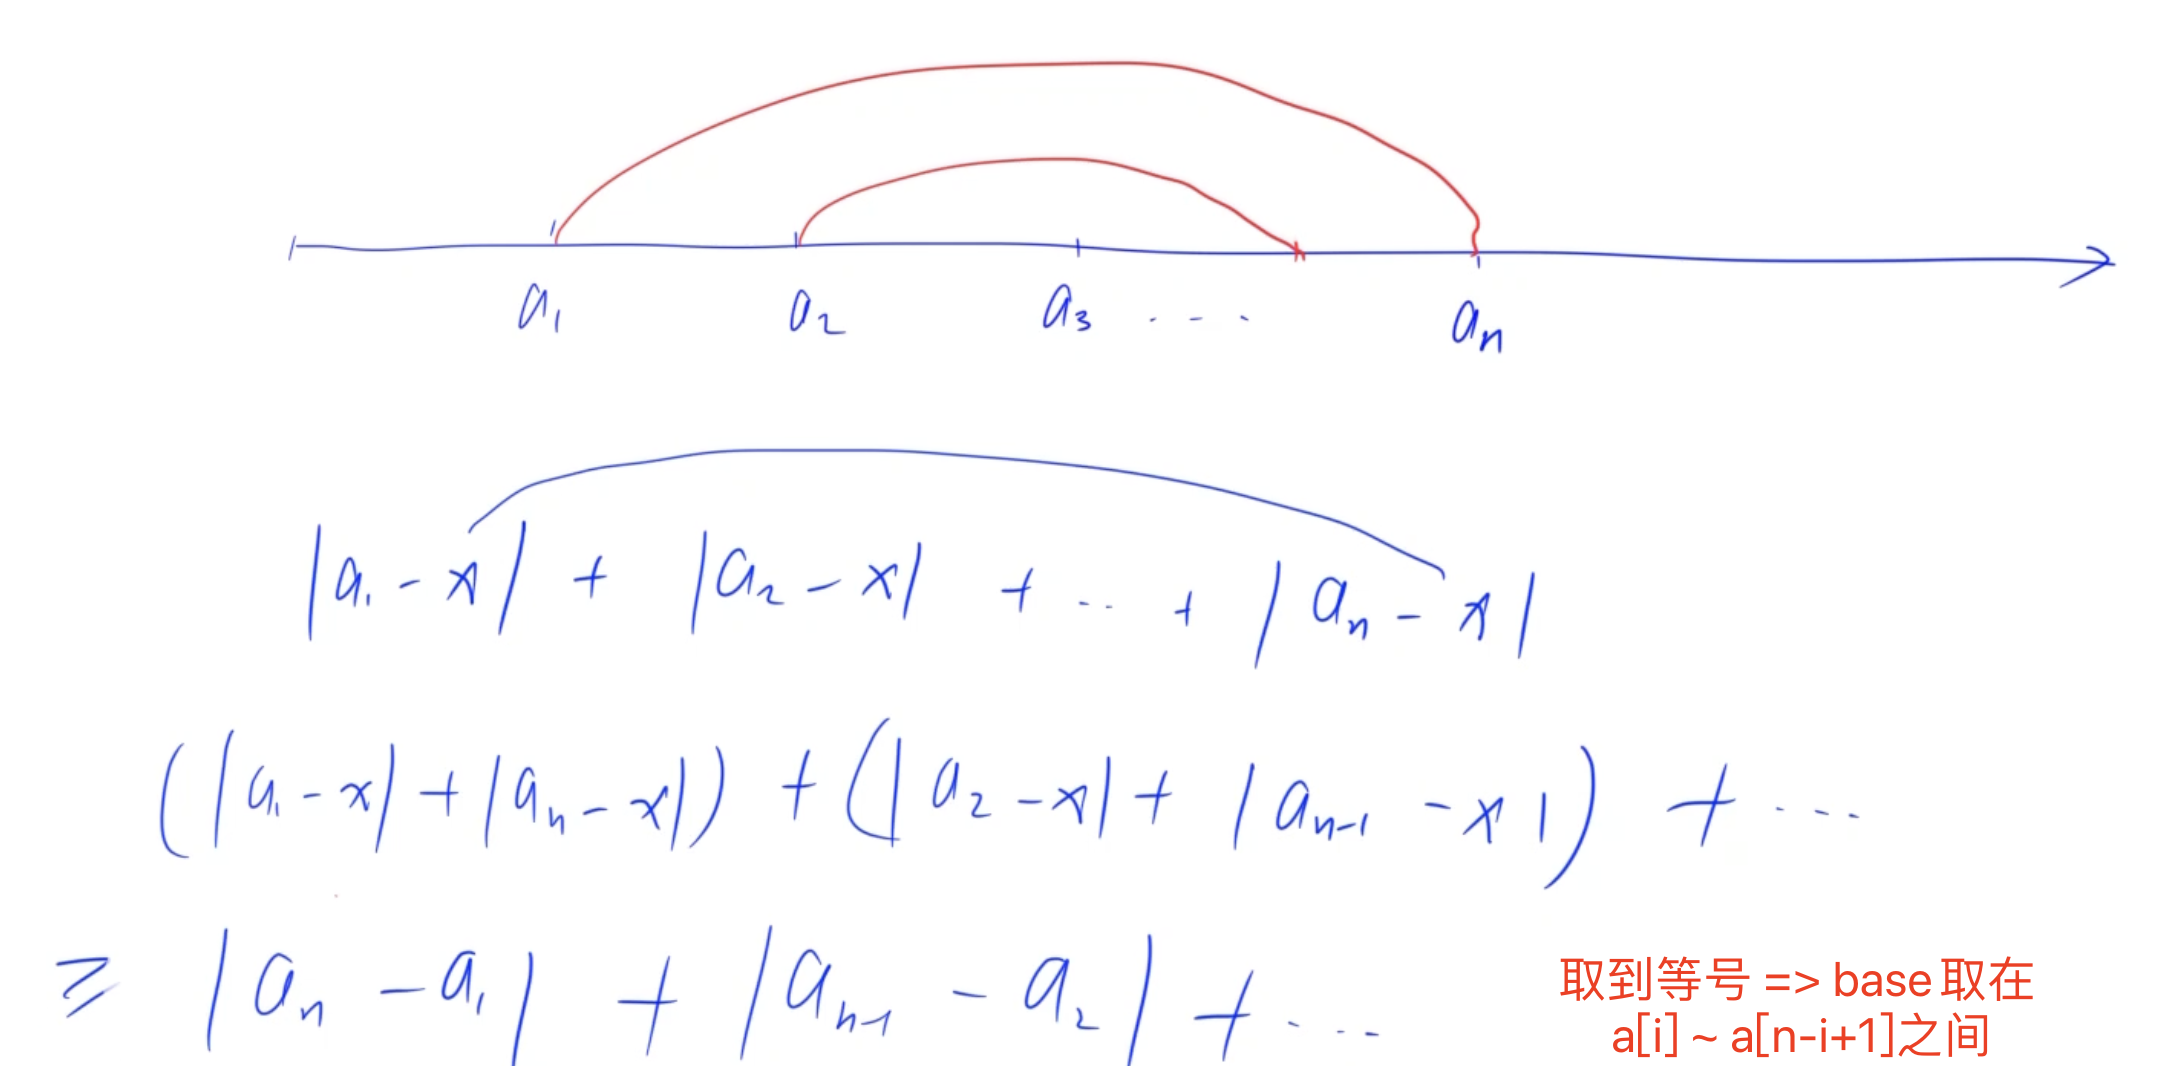 a₁ a₂ a₃ ... aₙ
|a₁ - x| + |a₂ - x| + ... + |aₙ - x|
(|a₁ - x| + |aₙ - x|) + (|a₂ - x| + |aₙ₋₁ - x|) + ...
≥ |aₙ - a₁| + |aₙ₋₁ - a₂| + ...
取到等号 => base取在
a[i] ~ a[n-i+1]之间